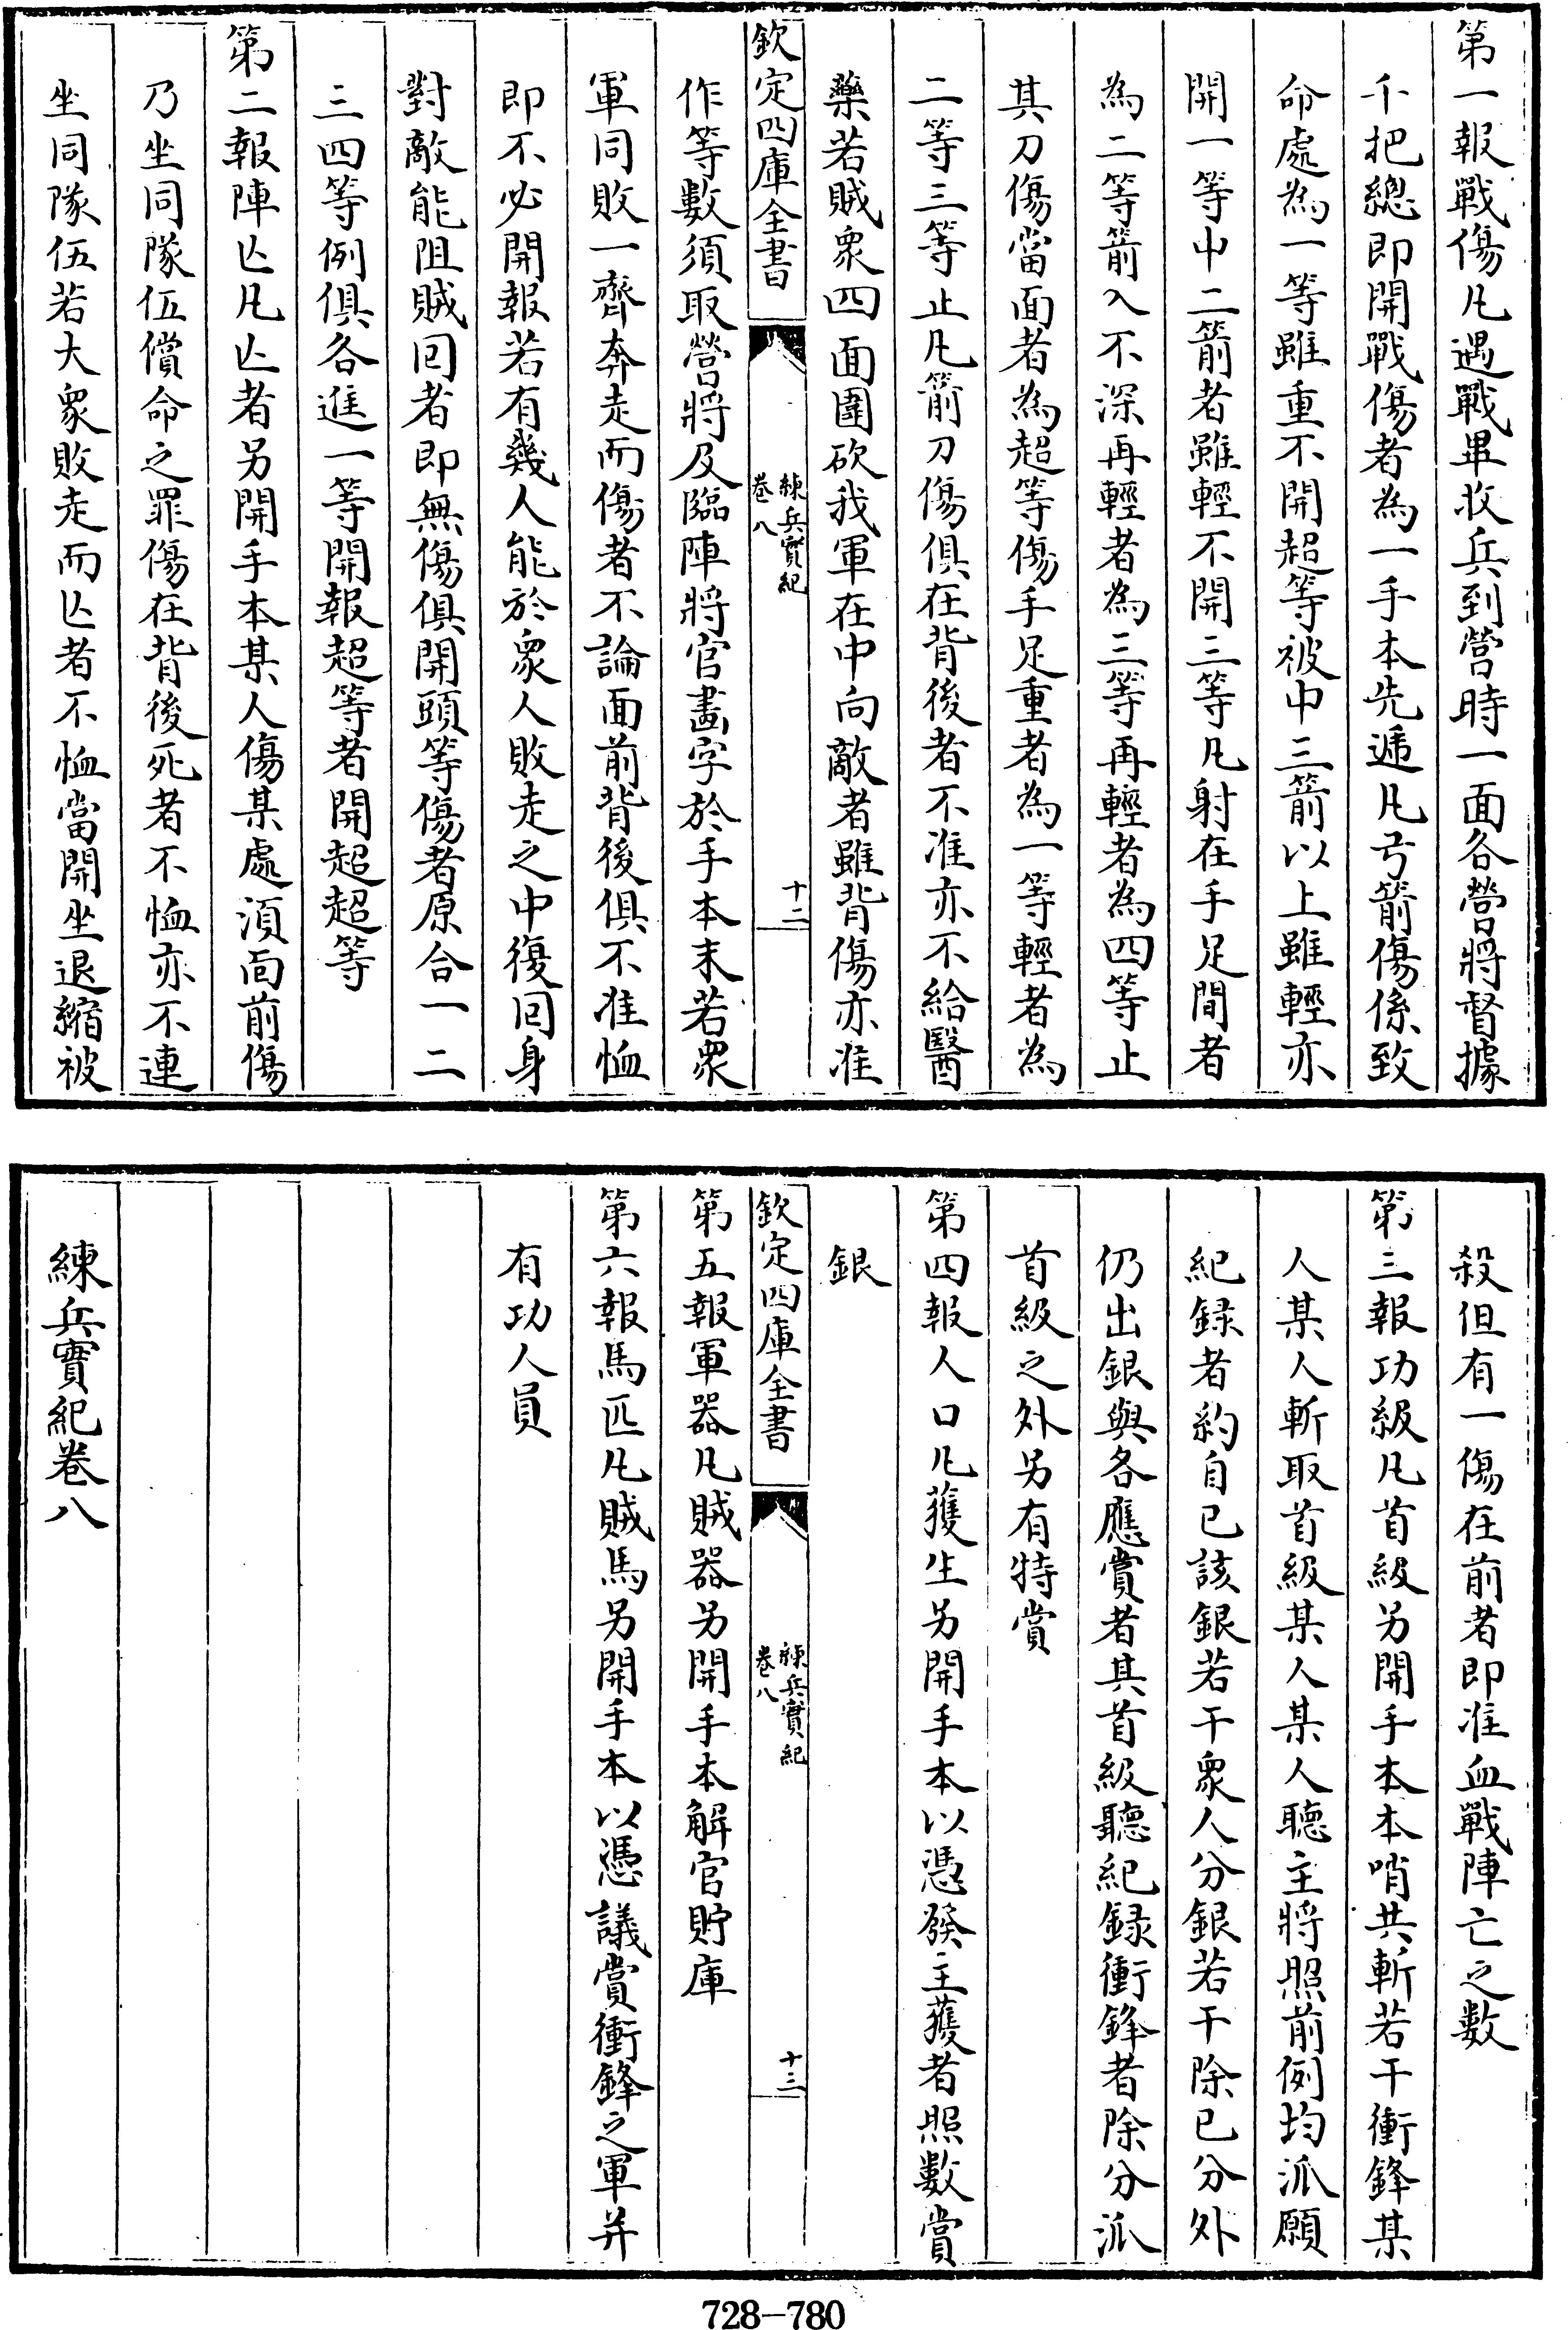 第一報戰傷凡遇戰畢收兵到營時一面各營將督據
千把總即開戰傷者為一手本先遞凡弓箭傷係致
命處為一等雖重不開超等被中三箭以上雖輕亦
開一等中二箭者雖輕不開三等凡射在手足間者
為二等箭入不深再輕者為三等再輕者為四等止
其刀傷當面者為超等傷手足重者為一等輕者為
二等三等止凡箭刀傷俱在背後者不准亦不給醫
藥若賊衆四面圍砍我軍在中向敵者雖背傷亦准
欽定四庫全書
練兵實紀
卷八
十二
作等數須取營將及臨陣將官畫字於手本末若衆
軍同敗一齊奔走而傷者不論面前背後俱不准恤
即不必開報若有幾人能於衆人敗走之中復回身
對敵能阻賊回者即無傷俱開頭等傷者原合一二
三四等例俱各進一等開報超等者開超超等
第二報陣亡凡亡者另開手本某人傷某處湏面前傷
乃坐同隊伍償命之罪傷在背後死者不恤亦不連
坐同隊伍若大衆敗走而亡者不恤當開坐退縮被
殺但有一傷在前者即准血戰陣亡之數
第三報功級凡首級另開手本本哨共斬若干衝鋒某
人某人斬取首級某人某人聽主將照前例均派願
紀録者約自已該銀若干衆人分銀若干除已分外
仍出銀與各應賞者其首級聽紀録衝鋒者除分派
首級之外另有特賞
第四報人口凡獲生另開手本以憑發主獲者照數賞
銀
欽定四庫全書
練兵實紀
卷八
十三
第五報軍器凡賊器另開手本解官貯庫
第六報馬匹凡賊馬另開手本以憑議賞衝鋒之軍并
有功人員
練兵實紀卷八
728-780